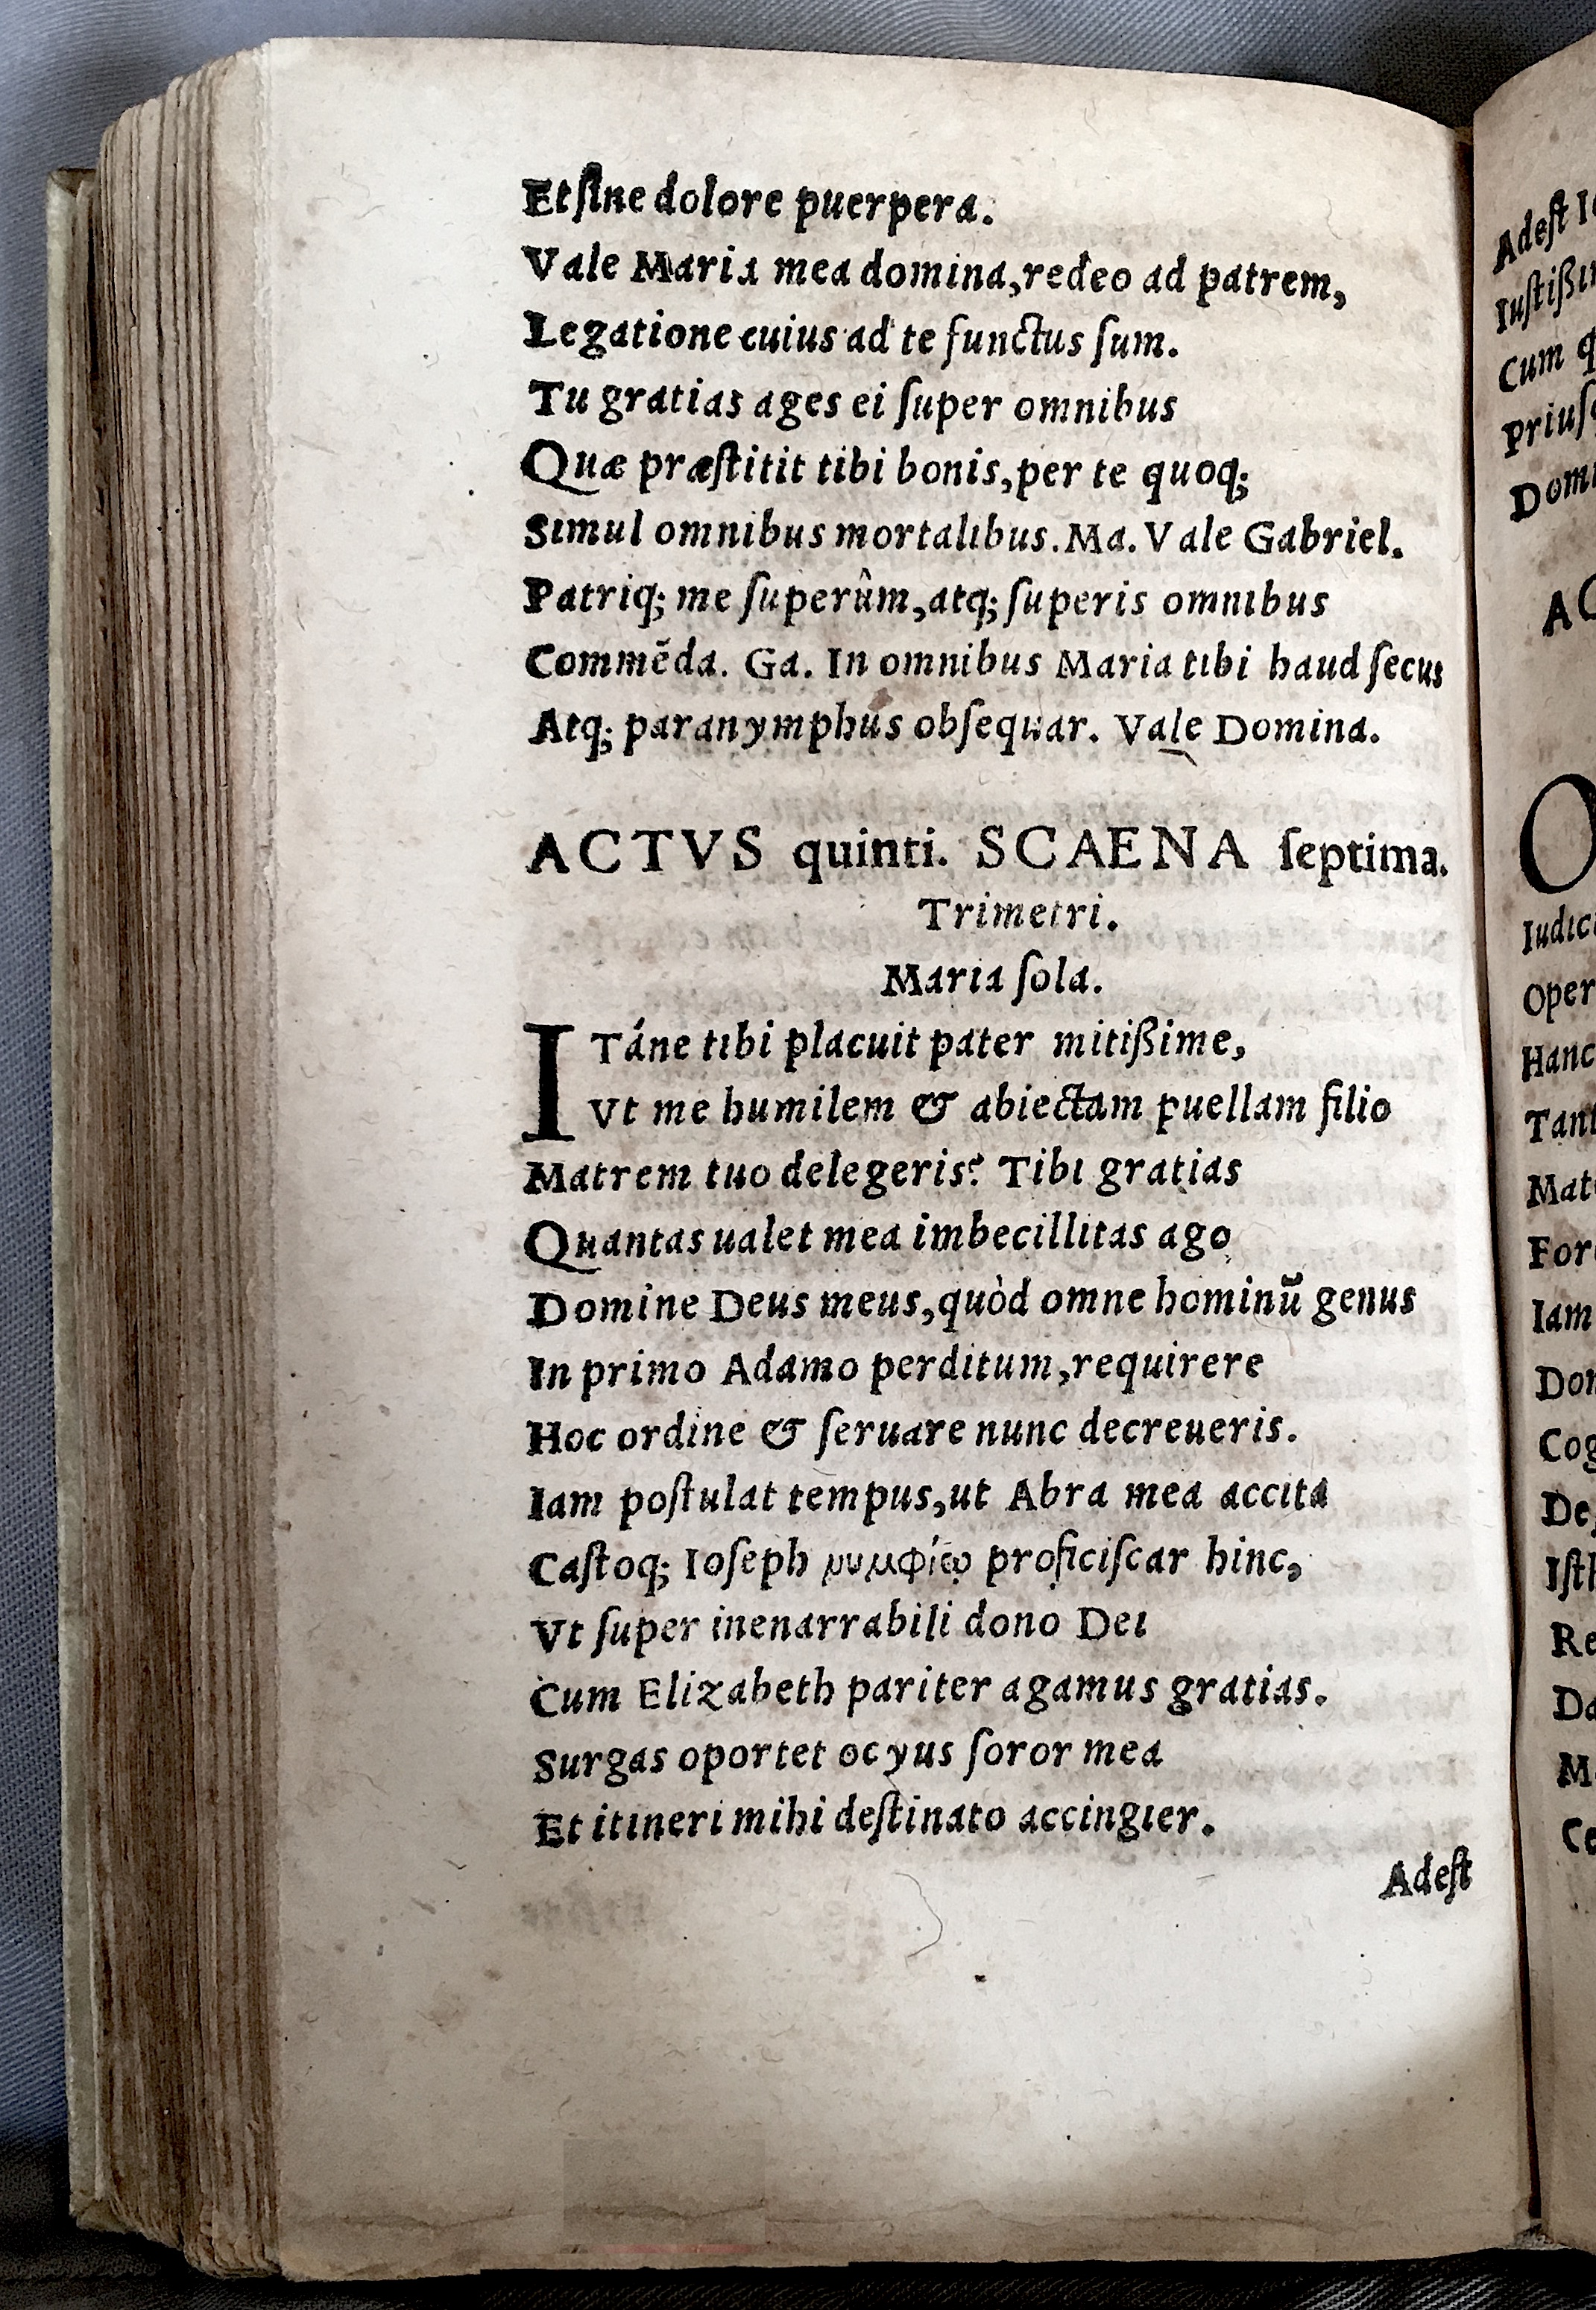 Et ſine dolore puerpera.
Vale Maria mea domina, redeo ad patrem,
Legatione cuius ad te functus ſum.
Tu gratias ages ei ſuper omnibus
Quæ præſtitit tibi bonis, per te quoq;
Simul omnibus mortalibus. Ma. Vale Gabriel.
Patriq; me ſuperûm, atq; ſuperis omnibus
Commẽda. Ga. In omnibus Maria tibi haud ſecus
Atq; paranymphus obſequar. Vale Domina.
ACTVS quinti. SCAENA ſeptima.
Trimetri.
Maria ſola.
ITáne tibi placuit pater mitißime,
Vt me humilem & abiectam puellam filio
Matrem tuo delegeris? Tibi gratias
Quantas ualet mea imbecillitas ago
Domine Deus meus, quòd omne hominũ genus
In primo Adamo perditum, requirere
Hoc ordine & ſeruare nunc decreueris.
Iam poſtulat tempus, ut Abra mea accita
Caſtoq; Ioſeph νυμφίῳ proficiſcar hinc,
Vt ſuper inenarrabili dono Dei
Cum Elizabeth pariter agamus gratias.
Surgas oportet ocyus ſoror mea
Et itineri mihi deſtinato accingier.
Adeſt
Adeſt
Cum
AC
O
Hanc
Iam